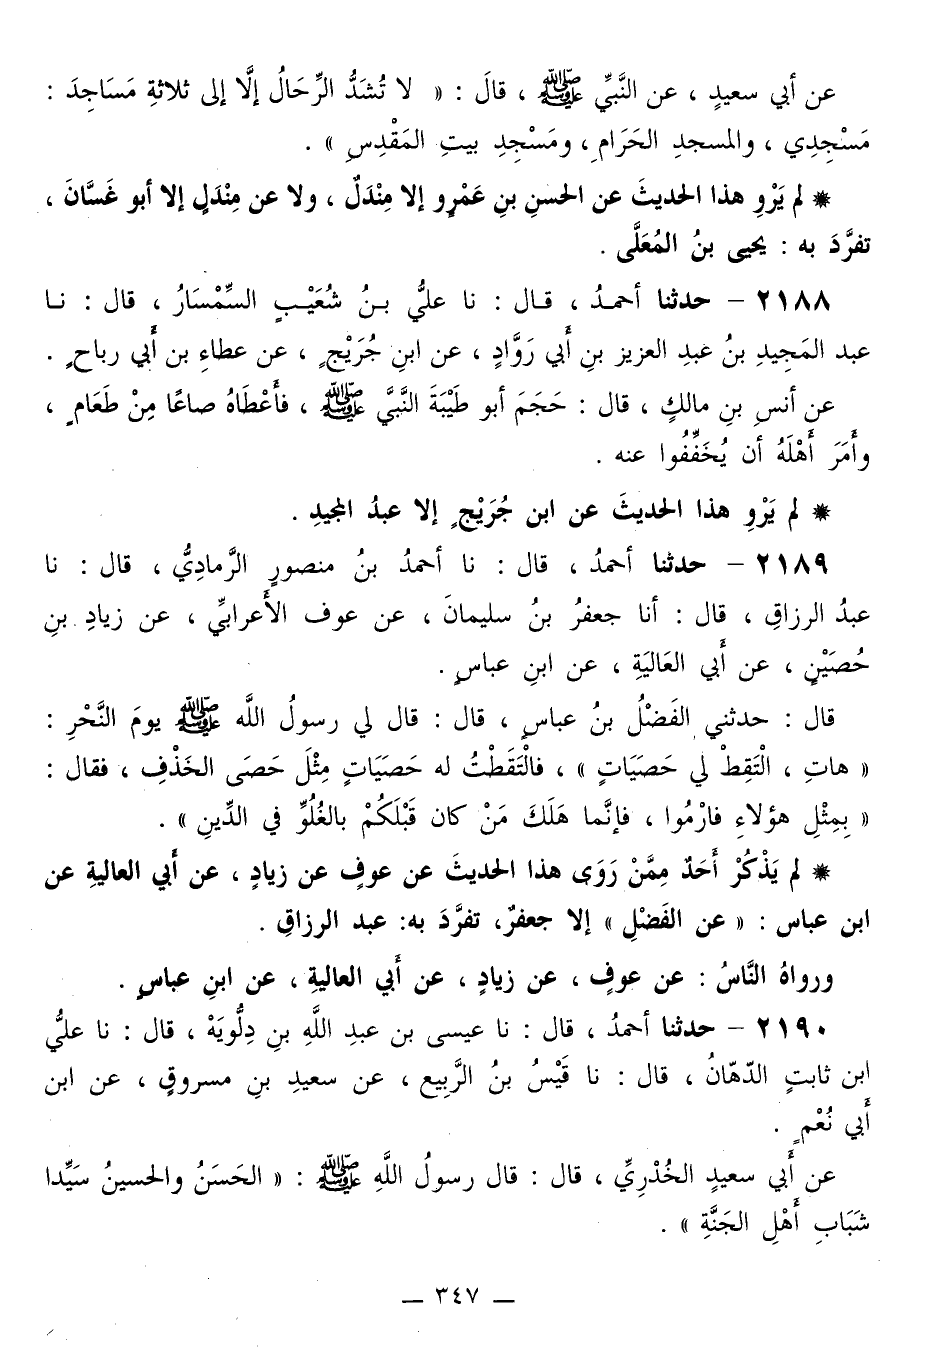 عن أبي سعيدٍ ، عن النَّبيِّ ﷺ ، قالَ : « لا تُشَدُّ الرِّحَالُ إلَّا إلى ثلاثةِ مَسَاجِدَ :
مَسْجِدِي ، والمسجدِ الحَرَامِ ، ومَسْجِدِ بيتِ المَقْدِسِ » .
* لم يَرْوِ هذا الحديثَ عن الحسنِ بنِ عَمْرٍو إلا مِنْدَلٌ ، ولا عن مِنْدَلٍ إلا أبو غَسَّانَ ،
تفرَّدَ به : يحيى بنُ المُعَلَّى .
٢١٨٨ – حدثنا أحمدُ ، قال : نا عليُّ بنُ شُعَيْبٍ السِّمْسَارُ ، قال : نا
عبد المَجِيدِ بنُ عبدِ العزيز بنِ أبي رَوَّادٍ ، عن ابنِ جُرَيْجٍ ، عن عطاءِ بن أبي رباحٍ .
عن أنسِ بنِ مالكٍ ، قال : حَجَمَ أبو طَيْبَةَ النَّبيَّ ﷺ ، فأَعْطَاهُ صاعًا مِنْ طَعَامٍ ،
وأَمَرَ أَهْلَهُ أن يُخَفِّفُوا عنه .
* لم يَرْوِ هذا الحديثَ عن ابن جُرَيْجٍ إلا عبدُ المجيدِ .
٢١٨٩ – حدثنا أحمدُ ، قال : نا أحمدُ بنُ منصورٍ الرَّمادِيُّ ، قال : نا
عبدُ الرزاقِ ، قال : أنا جعفرُ بنُ سليمانَ ، عن عوف الأَعرابيِّ ، عن زيادِ بنِ
حُصَيْنٍ ، عن أَبي العَاليَةِ ، عن ابنِ عباسٍ .
قال : حدثني الفَضْلُ بنُ عباسٍ ، قال : قال لي رسولُ اللَّه ﷺ يومَ النَّحْرِ :
« هاتِ ، الْتَقِطْ لي حَصَيَاتٍ » ، فالْتَقَطْتُ له حَصَيَاتٍ مِثْلَ حَصَى الخَذْفِ ، فقال :
« بِمِثْلِ هؤلاءِ فارْمُوا ، فإنَّما هَلَكَ مَنْ كان قَبْلَكُمْ بالغُلُوِّ في الدِّينِ » .
* لم يَذْكُرْ أَحَدٌ مِمَّنْ رَوَى هذا الحديثَ عن عوفٍ عن زيادٍ ، عن أَبي العاليةِ عن
ابن عباس : « عن الفَضْلِ » إلا جعفرٌ، تفرَّدَ به: عبد الرزاقِ .
ورواهُ النَّاسُ : عن عوفٍ ، عن زيادٍ ، عن أَبي العاليةِ ، عن ابنِ عباسٍ .
٢١٩٠ – حدثنا أحمدُ ، قال : نا عيسى بن عبدِ اللَّهِ بنِ دِلُّويَهْ ، قال : نا عليُّ
ابن ثابتٍ الدّهّانُ ، قال : نا قَيْسُ بنُ الرَّبِيع ، عن سعيدِ بنِ مسروقٍ ، عن ابن
أَبي نُعْمٍ .
عن أَبي سعيدٍ الخُدْرِيِّ ، قال : قال رسولُ اللَّهِ ﷺ : « الحَسَنُ والحسينُ سَيِّدا
شَبَابِ أَهْلِ الجَنَّةِ » .
– ٣٤٧ –